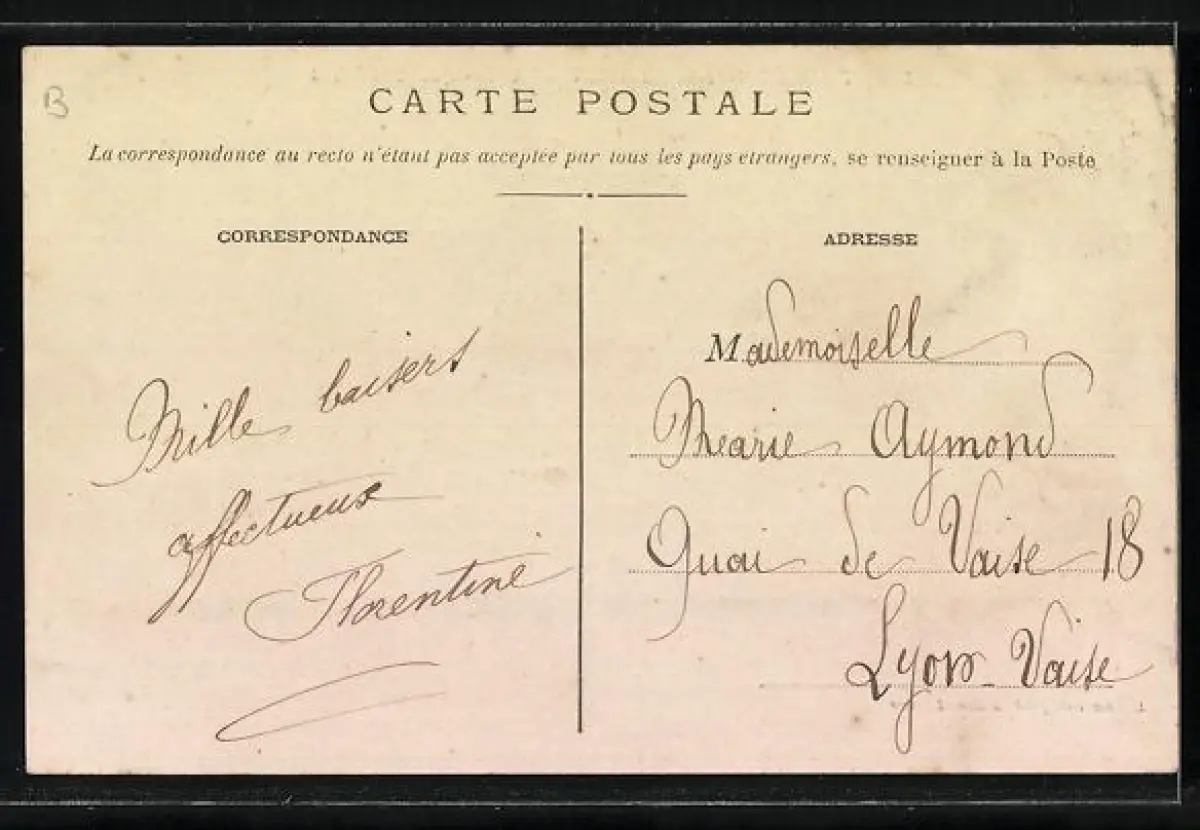 B
CARTE POSTALE
La correspondance au recto n'étant pas acceptée par tous les pays etrangers, se renseigner à la Poste
CORRESPONDANCE
Mille baisers
affectueux
Florentine
ADRESSE
Mademoiselle
Marie Aymond
Quai de Vaise 18
Lyon-Vaise